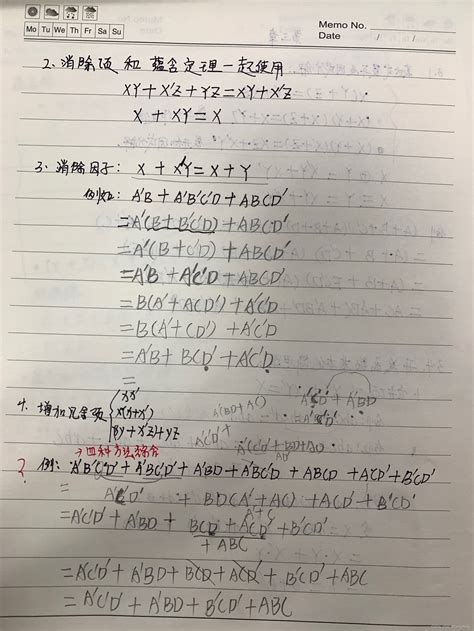 Memo No.
Mo Tu We Th Fr Sa Su
Date / /
2. 消除项 和 蕴含定理一起使用
XY + X'Z + YZ = XY + X'Z
X + XY = X
3. 消除因子: X + X'Y = X + Y
例如: A'B + A'B'C'D + ABCD'
= A'(B + B'C'D) + ABCD'
= A'(B + C'D) + ABCD'
= A'B + A'C'D + ABCD'
= B(A' + ACD') + A'C'D
= B(A' + CD') + A'C'D
= A'B + BCD' + A'C'D
=
4. 增加冗余项
XX'
X(Y+Y')
XY + X'Z + YZ
→四种方法结合
? 例: A'B'C'D' + A'BC'D' + A'BD + A'BC'D + ABCD + ACD' + B'CD'
= A'C'D' + BD(A' + AC) + ACD' + B'CD'
A' + C
= A'C'D' + A'BD + BCD + ACD' + B'CD'
+ ABC
= A'C'D' + A'BD + BCD + ACD' + B'CD' + ABC
= A'C'D' + A'BD + B'CD' + ABC